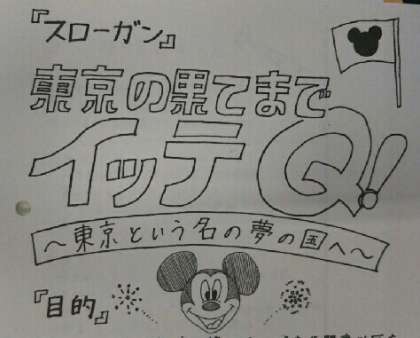 『スローガン』
東京の果てまで
イッテQ!
～東京という名の夢の国へ～
『目的』